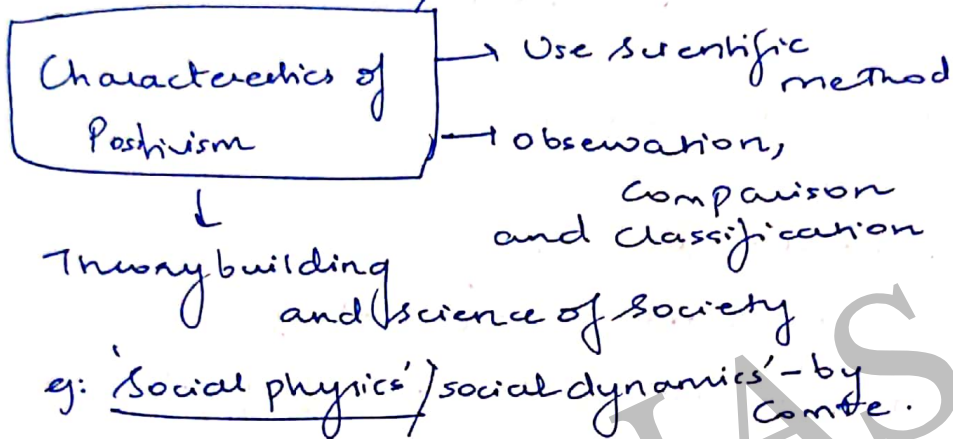 Characteristics of
Postivism
→ Use scientific
method
→ observation,
comparison
and classification
↓
Theory building
and science of society
eg: 'Social physics'/social dynamics' - by
Comte.
IAS